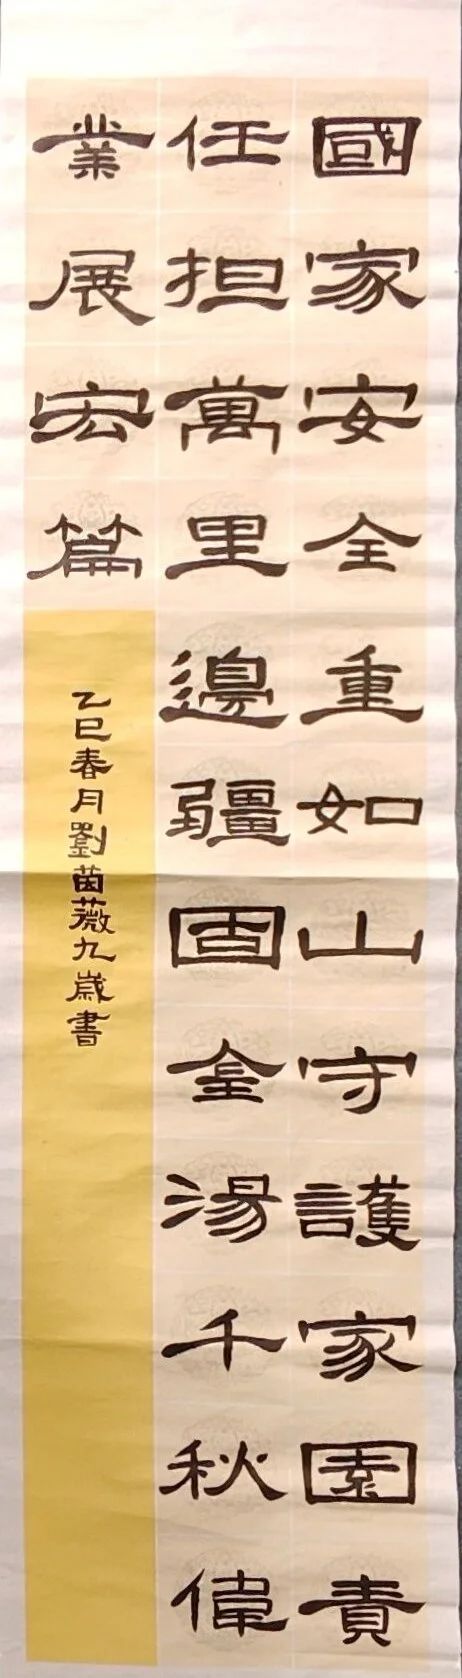 國家安全重如山守護家園責
任担萬里邊疆固金湯千秋偉
業展宏篇
乙巳春月劉茵薇九歲書